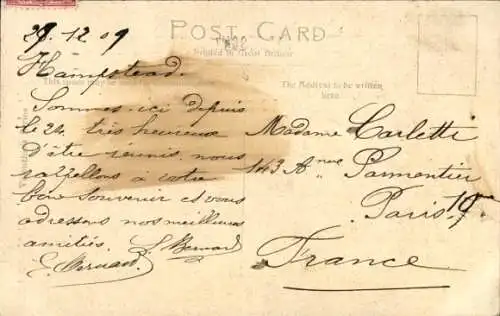 POST CARD
Printed in Great Britain
29.12.09
Hampstead.
The Address to be written
here.
Sommes ici depuis
le 24, très heureux
d'être réunis, nous
rappellons à votre
bon souvenir et vous
adressons nos meilleures
amitiés. S. Bernard
E. Bernard
Madame Carletti
143 Anue Parmentier
Paris
France